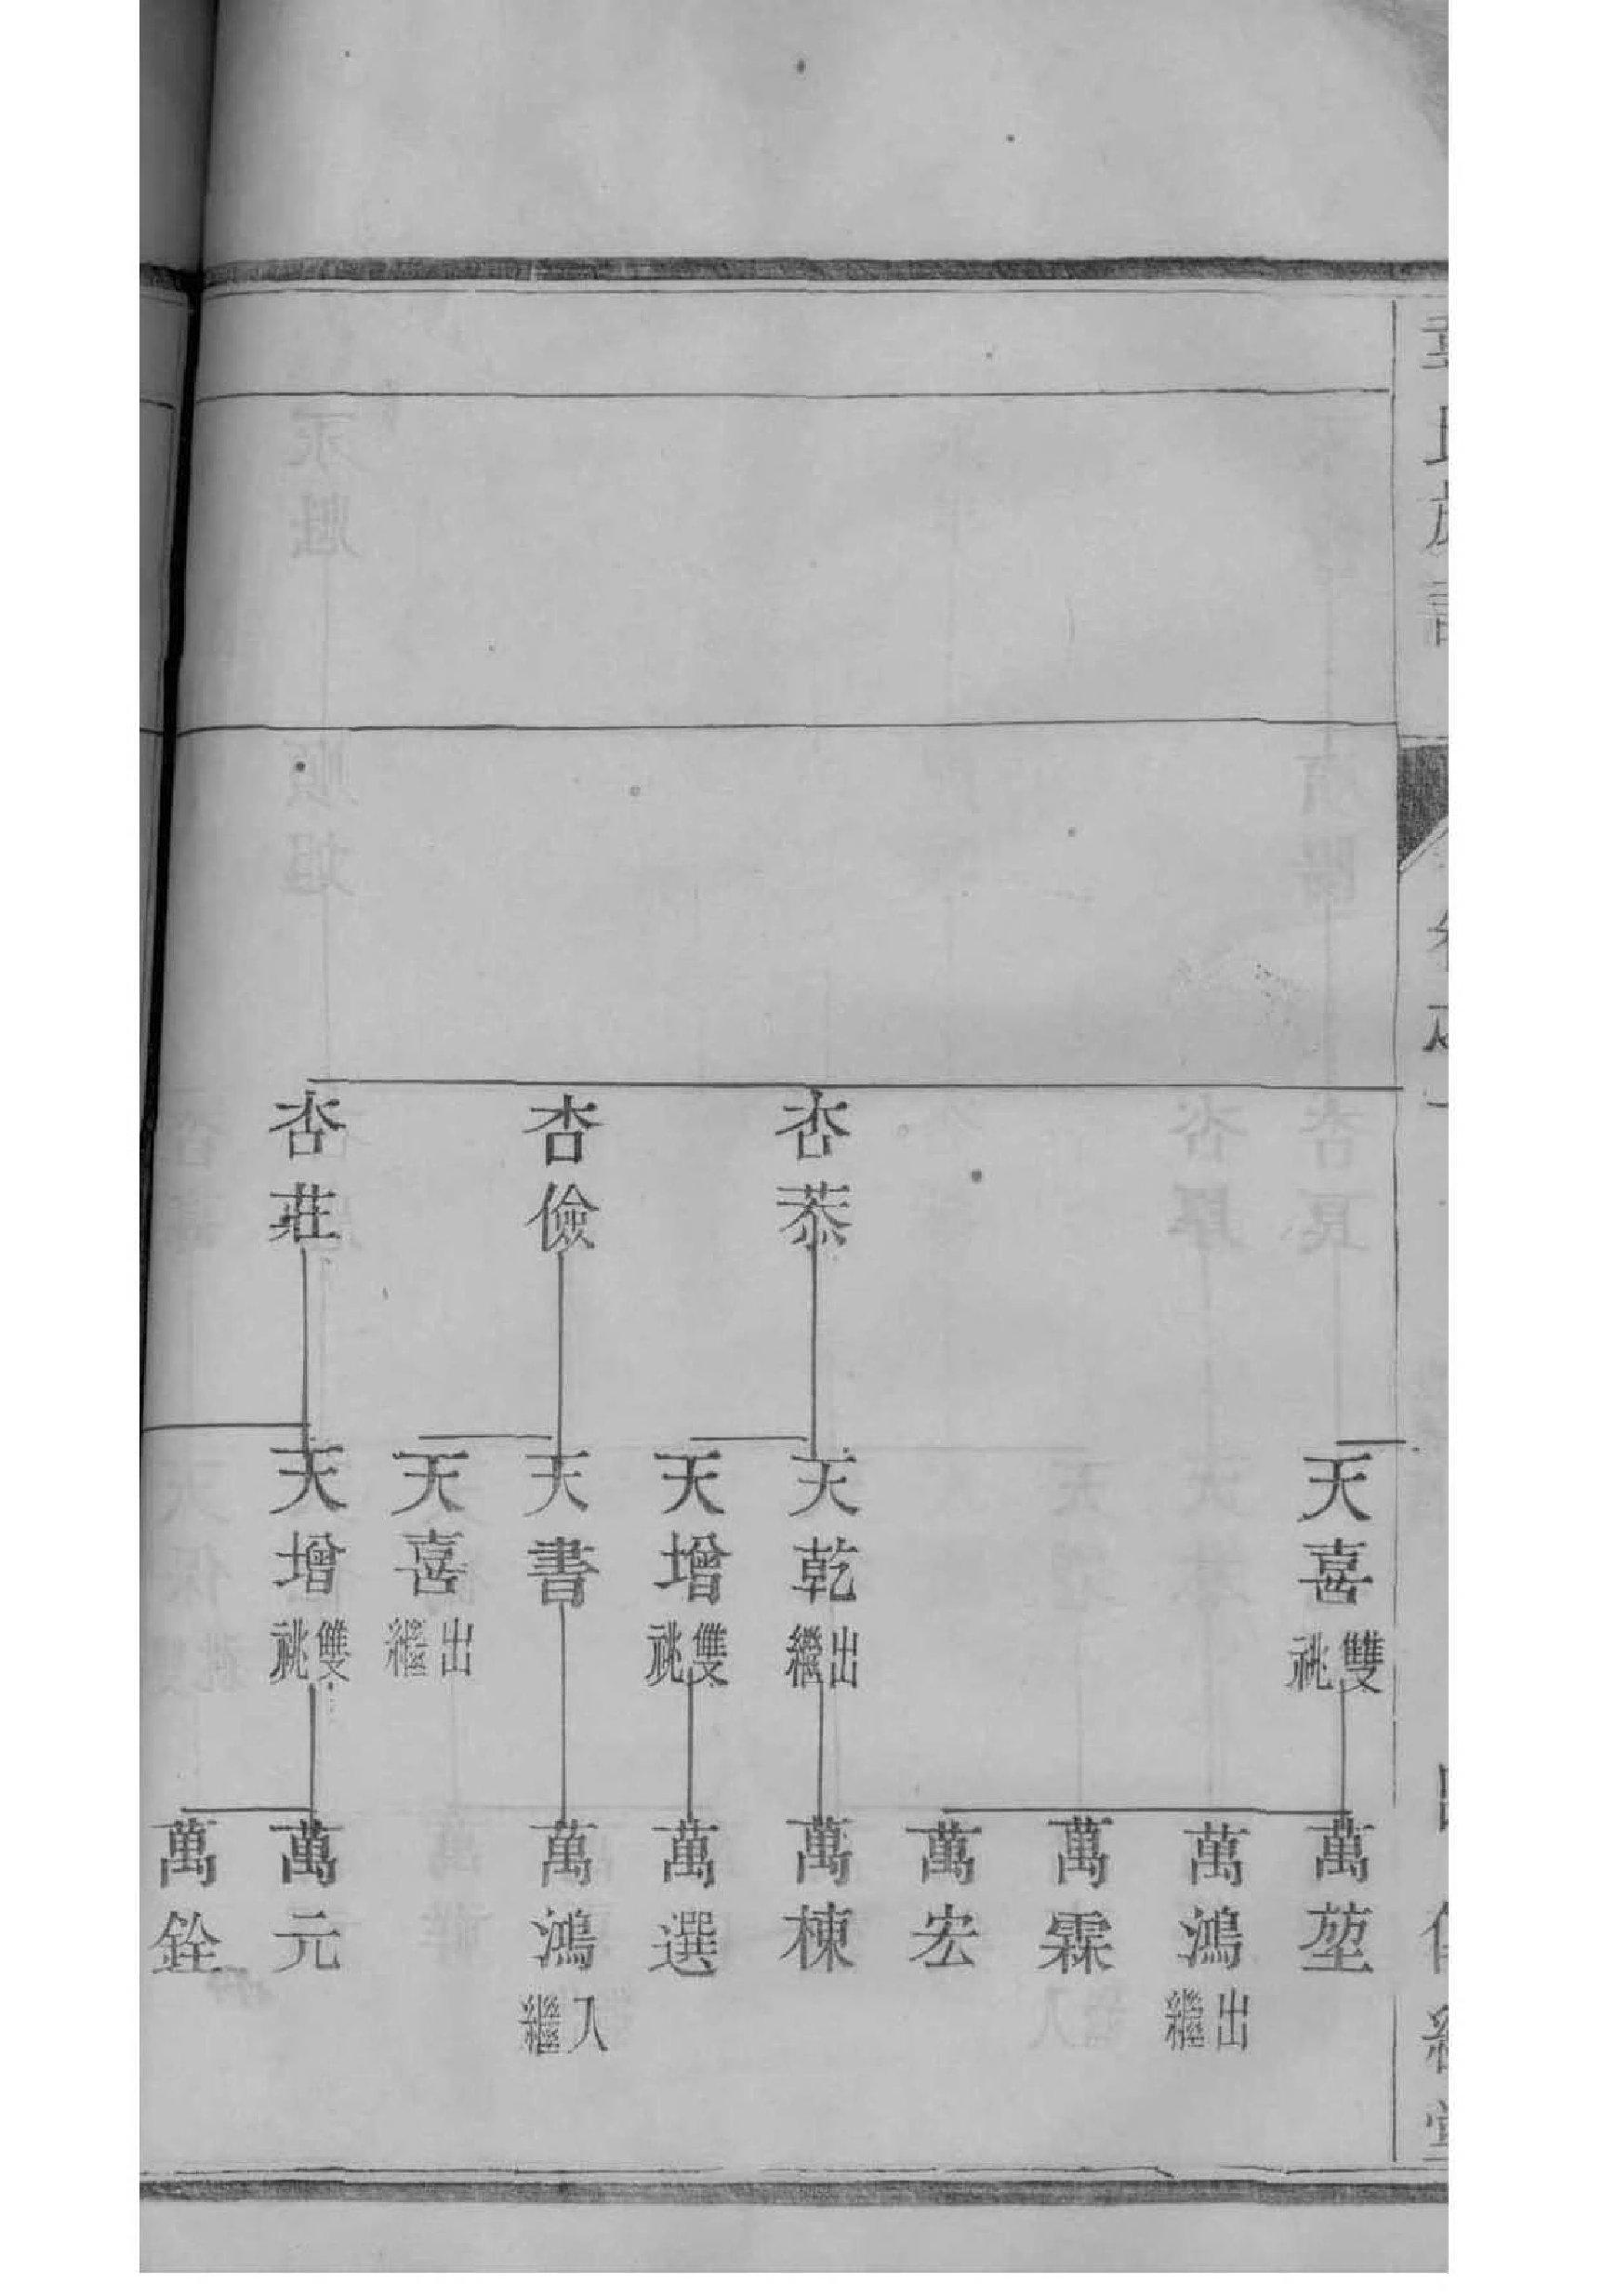 杏恭
杏儉
杏莊
天喜 雙祧
天乾 出繼
天增 雙祧
天書
天喜 出繼
天增 雙祧
萬堃
萬鴻 出繼
萬霖
萬宏
萬棟
萬選
萬鴻 入繼
萬元
萬銓